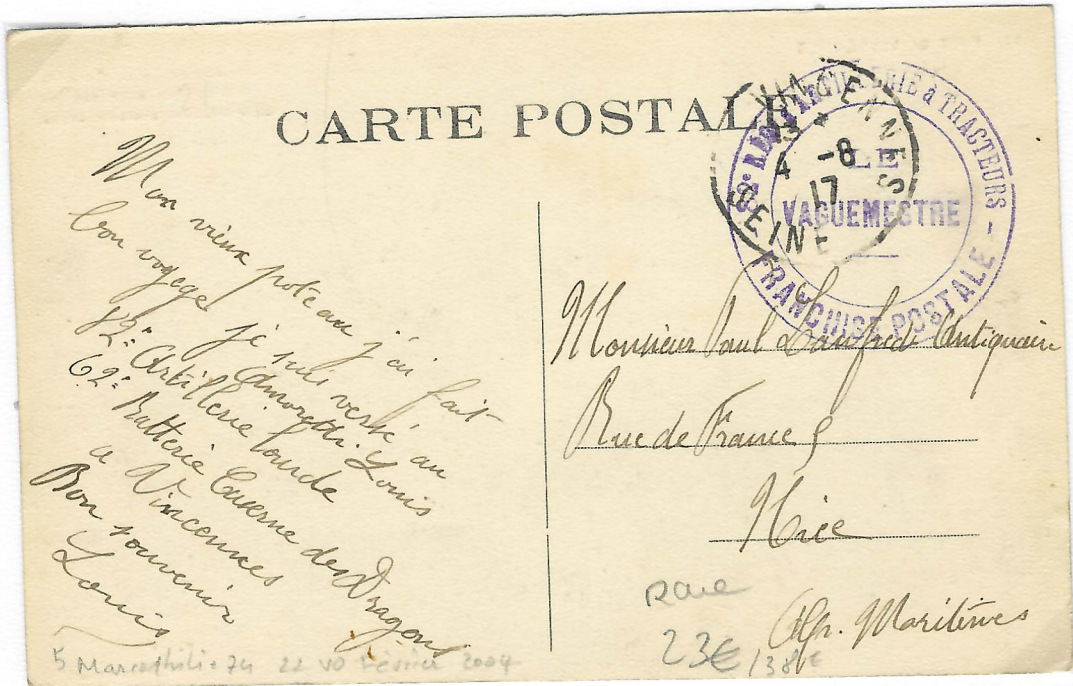 CARTE POSTALE
VINCENNES
13 *
4 -8
17
SEINE
82e RÉGt d'ARTILLERIE à TRACTEURS
LE
VAGUEMESTRE
- FRANCHISE POSTALE -
Mon vieux poteau j'ai fait
bon voyage je suis versé au
Amoretti Louis
82e Artillerie lourde
62e Batterie Caserne des Dragons
a Vincennes
Bon souvenir
Louis
Monsieur Paul Lanfredi Antiquaire
Rue de France 9
Nice
Alp. Maritimes
Rare
23€ /38€
5 Marcophili-74 22 Février 2004